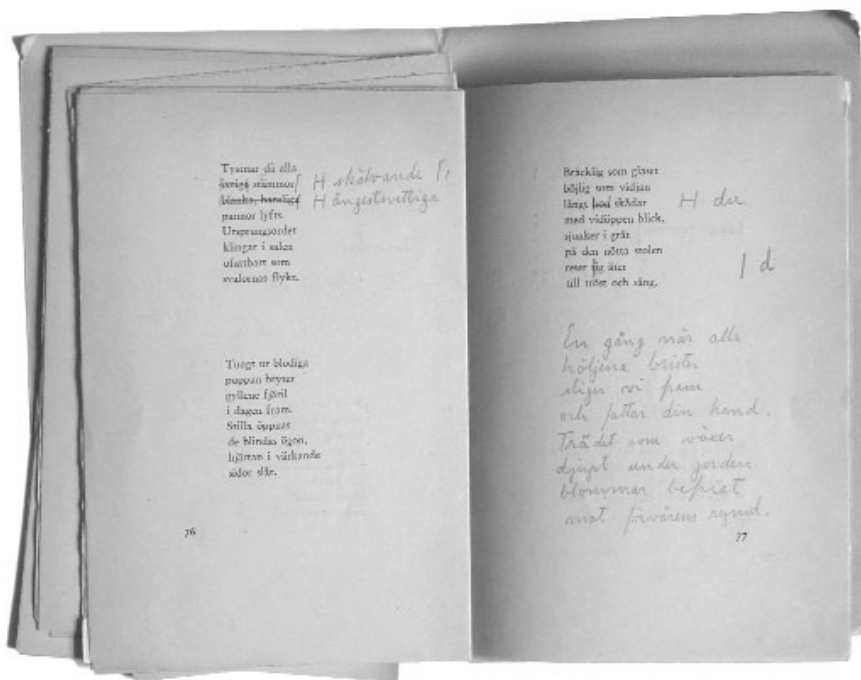 Tystnar då alla
övriga stämmor
H skälvande
blanka, barnsliga
H ångestsvettiga
pannor lyfts.
Ursprungsordet
klingar i salen
ofattbart som
svalornas flykt.
Tungt ur blodiga
puppan bryter
gyllene fjäril
i dagen fram.
Stilla öppnas
de blindas ögon,
hjärtan i värkande
sidor slår.
76
Bräcklig som glaset
böjlig som vidjan
längs hon skådar
H du
med vidöppen blick,
sjunker i gråt
på den nötta stolen
reser sig åter
d
till tröst och sång.
En gång när alla
höljena brister
stiger vi fram
och fattar din hand.
Trädet som växer
djupt under jorden
blommar befriat
mot förvårens rymd.
77